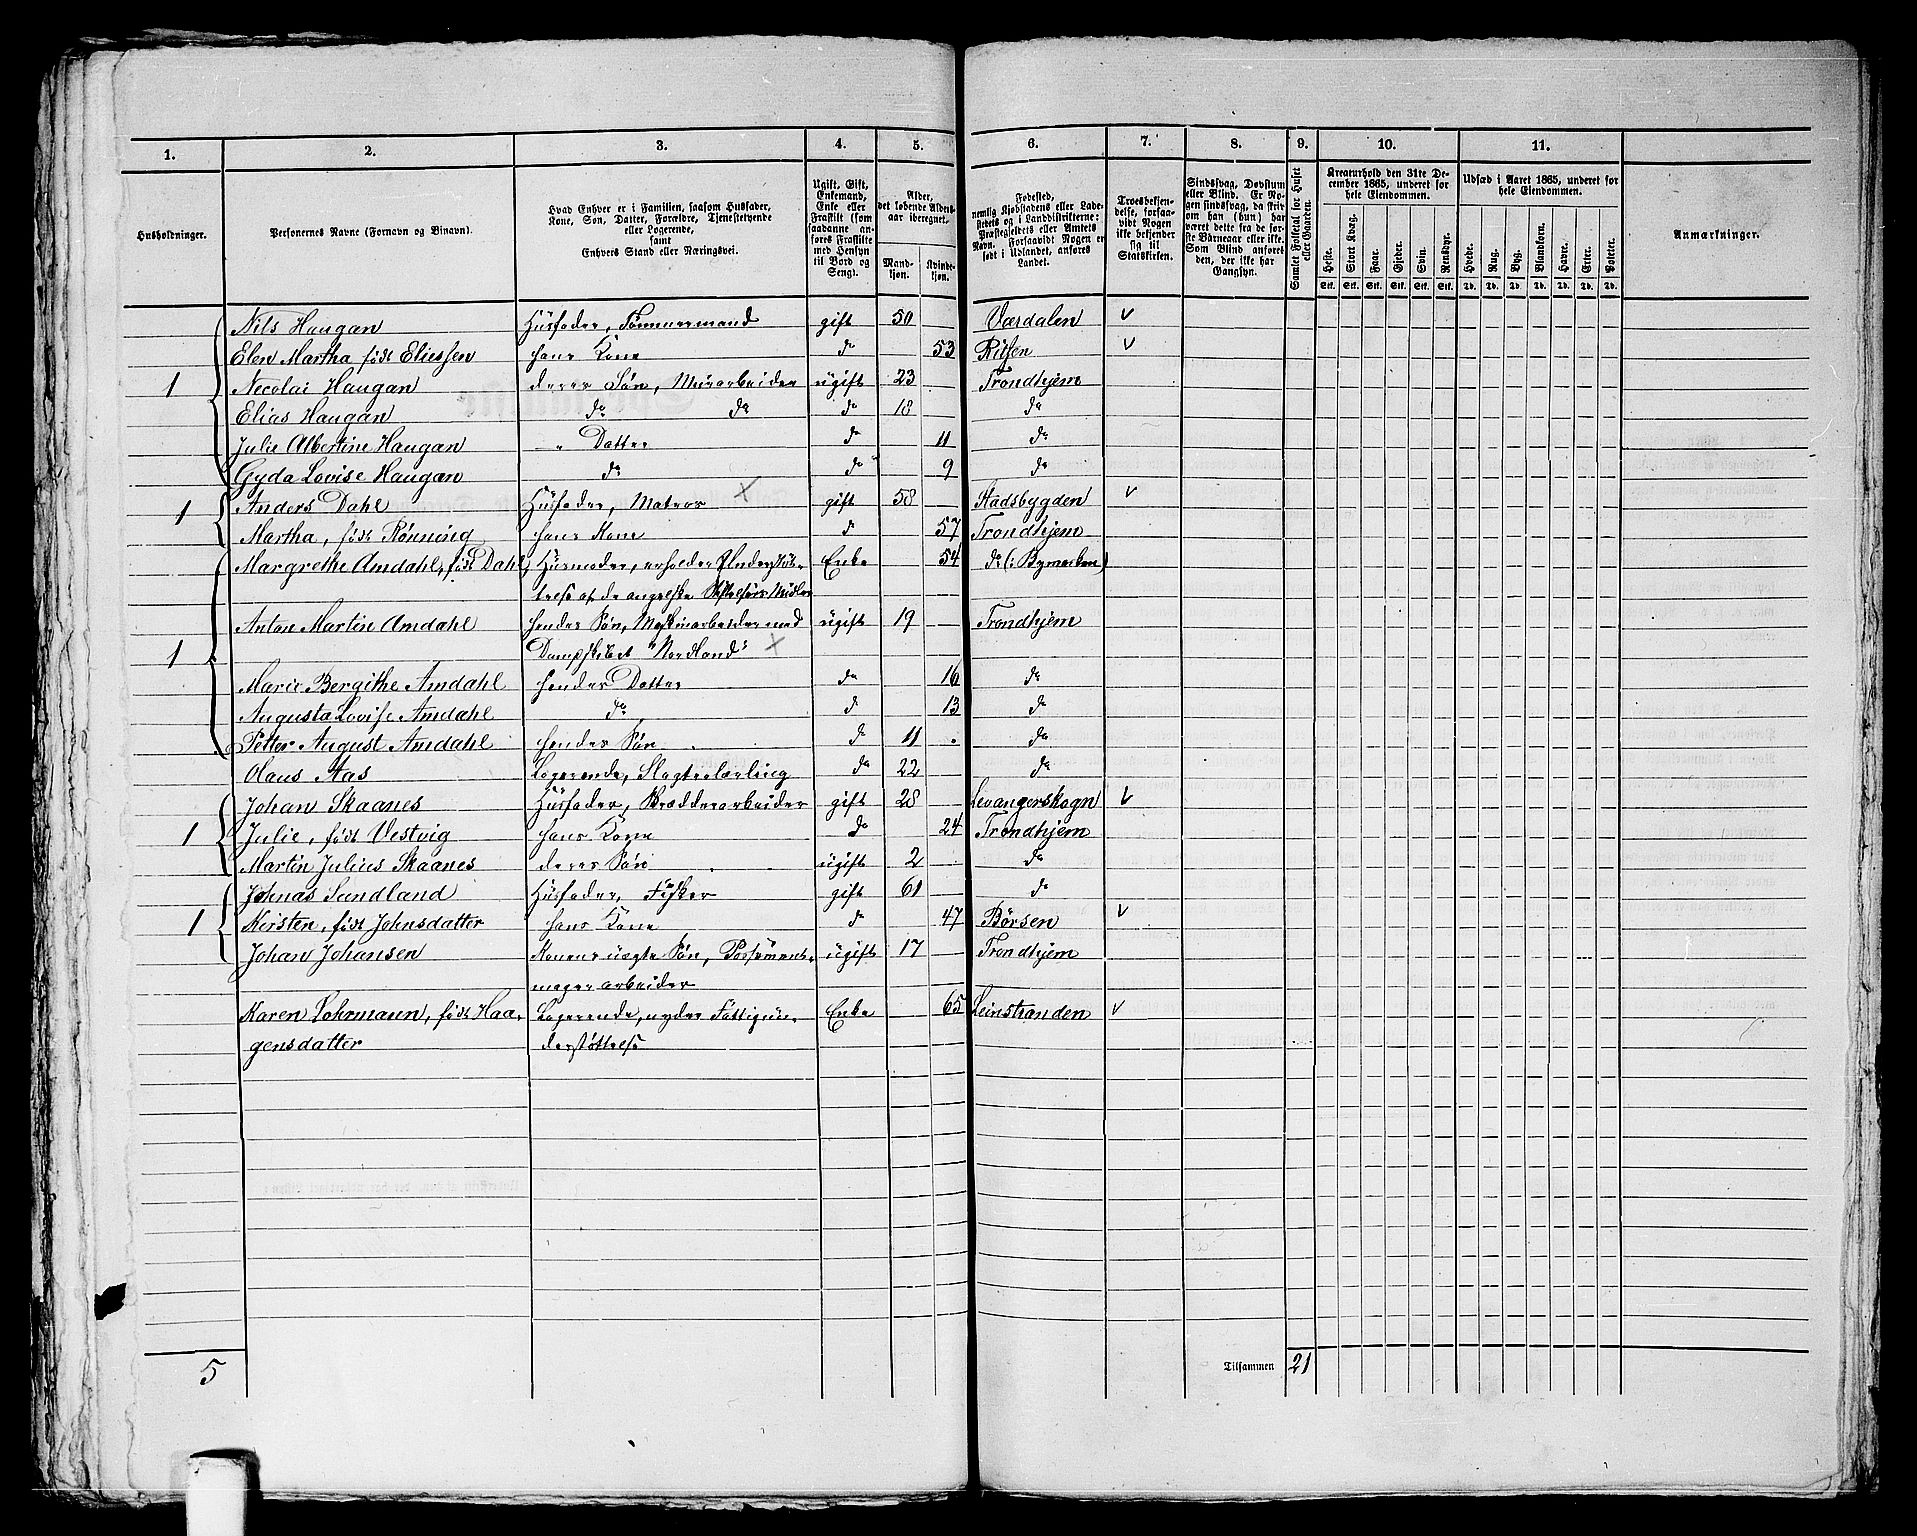 1. 2. 3. 4. 5. 6. 7. 8. 9. 10. 11.
Husholdninger.
Personernes Navne (Fornavn og Binavn).
Hvad Enhver er i Familien, saasom Husfader,
Kone, Søn, Datter, Forældre, Tjenestetyende
eller Logerende,
samt
Enhvers Stand eller Næringsvei.
Ugift, Gift,
Enkemand,
Enke eller
Fraskilt (som
saadanne an-
føres Fraskilte
med Hensyn
til Bord og
Seng).
Alder,
det løbende Alders-
aar iberegnet.
Mand-
kjøn.
Kvinde-
kjøn.
Fødested,
nemlig Kjøbstadens eller Lade-
stedets og i Landdistrikterne:
Præstegjeldets eller Amtets
Navn. Forsaavidt Nogen er
født i Udlandet, anføres
Landet.
Troesbekjen-
delse, forsaa-
vidt Nogen
ikke bekjender
sig til
Statskirken.
Sindssvag, Døvstum
eller Blind. Er No-
gen sindssvag, da skri-
ves om han (hun) har
været dette fra de før-
ste Barneaar eller ikke.
Som Blind anføres
den, der ikke har
Gangsyn.
Samlet Folketal for Huset
eller Gaarden.
Kreaturhold den 31te De-
cember 1865, underet for
hele Eiendommen.
Heste. Stort Kvæg. Faar. Gjeder. Svin. Rensdyr.
Stk. Stk. Stk. Stk. Stk. Stk.
Udsæd i Aaret 1865, underet for
hele Eiendommen.
Hvede. Rug. Byg. Blandkorn. Havre. Erter. Poteter.
Td. Td. Td. Td. Td. Td. Td.
Anmærkninger.
Nils Haugan Husfader, Tømmermand gift 50 Værdalen v
Elen Martha født Eliessen hans Kone do 53 Ritsen v
1 Necolai Haugan deres Søn, Murarbeider ugift 23 Trondhjem
Elias Haugan do do do 18 do
Julie Albertine Haugan " Datter do 11 do
Gyda Lovise Haugan do do 9 do
1 Anders Dahl Husfader, Matros × gift 58 Stadsbygden v
Martha, født Rønning hans Kone do 57 Trondhjem
Margrethe Amdahl, født Dahl, Husmoder, erholder Understøt- Enke 54 do (: Bymarken)
telse af de Midler
Anton Martin Amdahl hendes Søn, med ugift 19 Trondhjem
1 Dampskibet "Nordland" ×
Marie Bergithe Amdahl hendes Datter do 16 do
Augusta Lovise Amdahl do do 13 do
Petter August Amdahl hendes Søn do 11 do
Olaus Aas Logerende, Slagterlærling do 22 do
Johan Skaanes Husfader, Bræddearbeider gift 28 Levangerskogn v
1 Julie, født Vestvig hans Kone do 24 Trondhjem
Martin Julius Skaanes deres Søn ugift 2 do
Johnas Sundland Husfader, Fisker gift 61 do
1 Kirsten, født Johnsdatter hans Kone do 47 Børsen v
Johan Johansen Konens uægte Søn, ugift 17 Trondhjem
magerarbeider
Karen Lohrmann, født Haa- Logerende, nyder Fattigun- Enke 65 Leinstranden v
gensdatter derstøttelse
5 Tilsammen 21